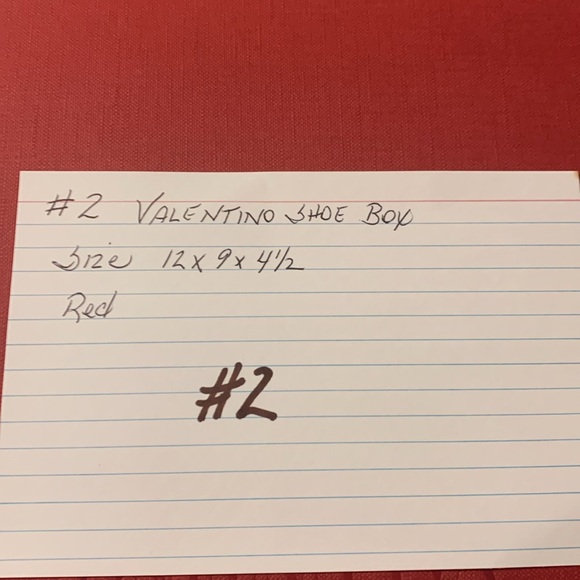 #2 VALENTINO SHOE BOX
Size 12 x 9 x 4 1/2
Red
#2